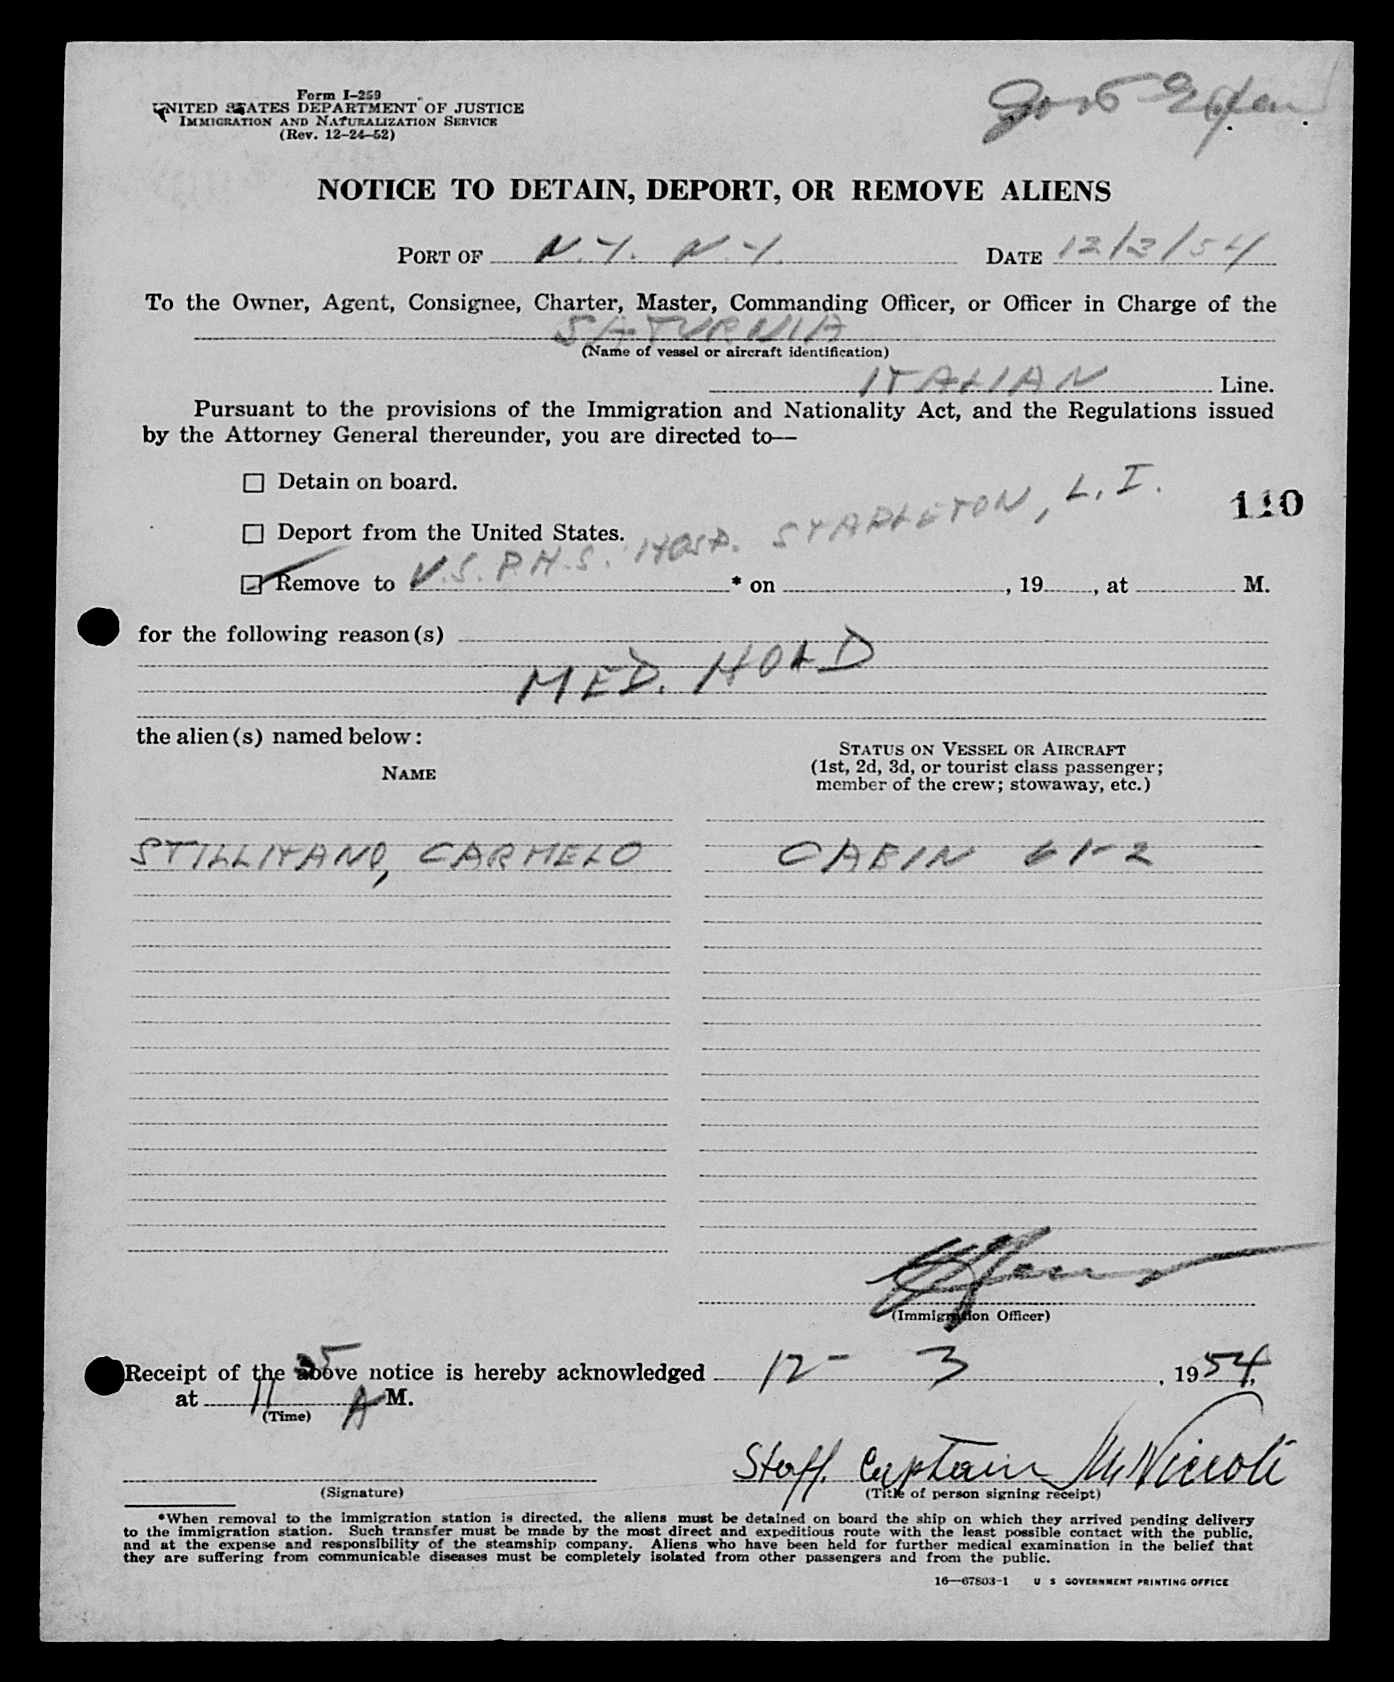 Form I-259
UNITED STATES DEPARTMENT OF JUSTICE
IMMIGRATION AND NATURALIZATION SERVICE
(Rev. 12-24-52)
NOTICE TO DETAIN, DEPORT, OR REMOVE ALIENS
PORT OF N.Y. N.Y. DATE 12/3/54
To the Owner, Agent, Consignee, Charter, Master, Commanding Officer, or Officer in Charge of the
SATURNIA
(Name of vessel or aircraft identification)
ITALIAN Line.
Pursuant to the provisions of the Immigration and Nationality Act, and the Regulations issued
by the Attorney General thereunder, you are directed to—
☐ Detain on board.
110
☐ Deport from the United States.
☑ Remove to U.S.P.H.S. HOSP. STAPLETON, L.I. * on , 19 , at M.
for the following reason(s)
MED. HOLD
the alien(s) named below:
NAME
STATUS ON VESSEL OR AIRCRAFT
(1st, 2d, 3d, or tourist class passenger;
member of the crew; stowaway, etc.)
STILLITANO, CARMELO CABIN 61-2
(Immigration Officer)
Receipt of the above notice is hereby acknowledged 12 - 3, 1954,
at 11 35 A M.
(Time)
Staff Captain
(Signature)
(Title of person signing receipt)
*When removal to the immigration station is directed, the aliens must be detained on board the ship on which they arrived pending delivery
to the immigration station. Such transfer must be made by the most direct and expeditious route with the least possible contact with the public,
and at the expense and responsibility of the steamship company. Aliens who have been held for further medical examination in the belief that
they are suffering from communicable diseases must be completely isolated from other passengers and from the public.
16—67803-1 U S GOVERNMENT PRINTING OFFICE